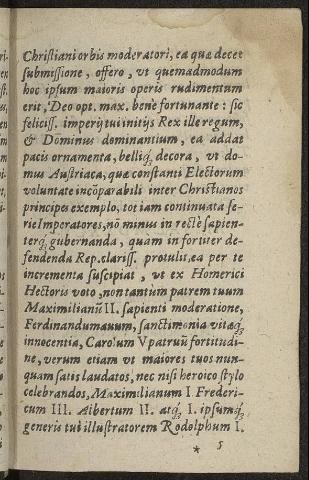 Christiani orbis moderatori, ea quæ decet
submissione, offero, vt quemadmodum
hoc ipsum maioris operis rudimentum
erit, Deo opt. max. bene fortunante: sic
feliciss. imperij tui initijs Rex ille regum,
& Dominus dominantium, ea addat
pacis ornamenta, belliq́; decora, vt do-
mus Austriaca, quæ constanti Electorum
voluntate incōparabili inter Christianos
principes exemplo, tot iam continuata se-
rie Imperatores, nō minus in rectè sapien-
terq́; gubernanda, quam in fortiter de-
fendenda Rep. clariss. protulit, ea per te
incrementa suscipiat, vt ex Homerici
Hectoris voto, non tantùm patrem tuum
Maximilianū II. sapienti moderatione,
Ferdinandum auum, sanctimonia vitaq́;
innocentia, Carolum V patruū fortitudi-
ne, verum etiam vt maiores tuos nun-
quam satis laudatos, nec nisi heroico stylo
celebrandos, Maximilianum I. Frederi-
cum III. Albertum II. atq́; I. ipsumq́;
generis tui illustratorem Rodolphum I.
* 5